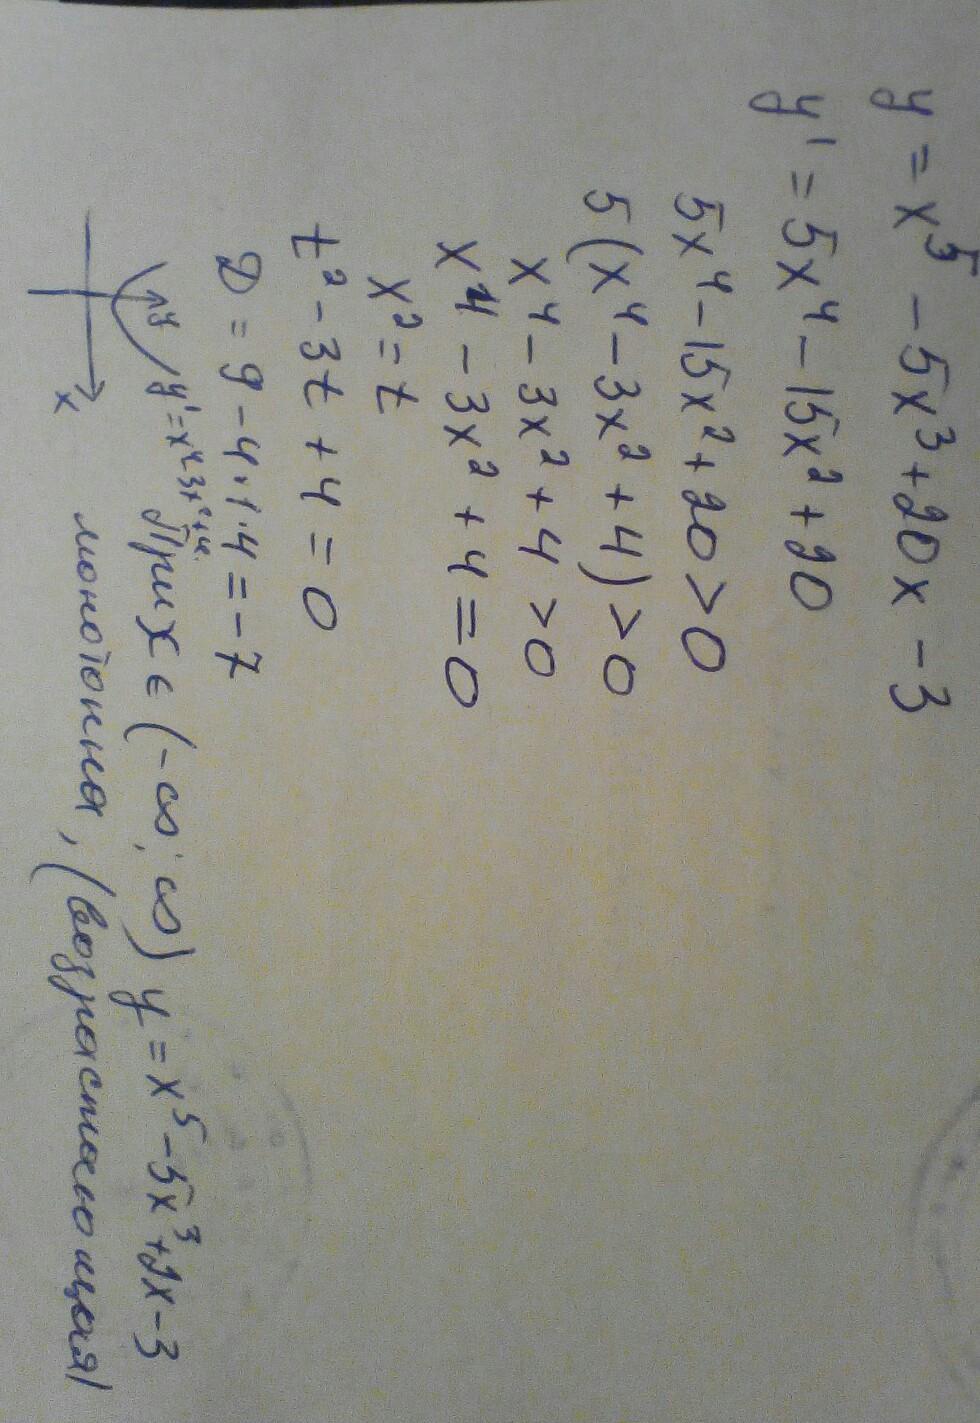 y = x⁵ - 5x³ + 20x - 3
y' = 5x⁴ - 15x² + 20
5x⁴ - 15x² + 20 > 0
5(x⁴ - 3x² + 4) > 0
x⁴ - 3x² + 4 > 0
x⁴ - 3x² + 4 = 0
x² = t
t² - 3t + 4 = 0
D = 9 - 4·1·4 = -7
y
y' = x⁴ - 3x² + 4
x
При x ∈ (-∞; ∞) y = x⁵ - 5x³ + 2x - 3
монотонна, (возрастающая)